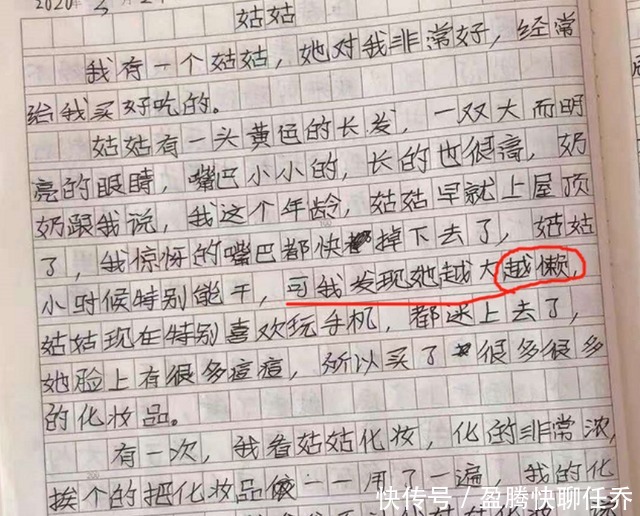 2020年3月2
姑姑
我有一个姑姑，她对我非常好，经常
给我买好吃的。
姑姑有一头黄色的长发，一双大而明
亮的眼睛，嘴巴小小的，长的也很高，奶
奶跟我说，我这个年龄，姑姑早就上屋顶
了，我惊讶的嘴巴都快掉下去了，姑姑
小时候特别能干，可我发现她越大越懒，
姑姑现在特别喜欢玩手机，都迷上去了，
她脸上有很多痘痘，所以买了很多很多
的化妆品。
有一次，我看姑姑化妆，化的非常浓，
挨个的把化妆品一一用了一遍，我的化
快传号／盈腾快聊任乔